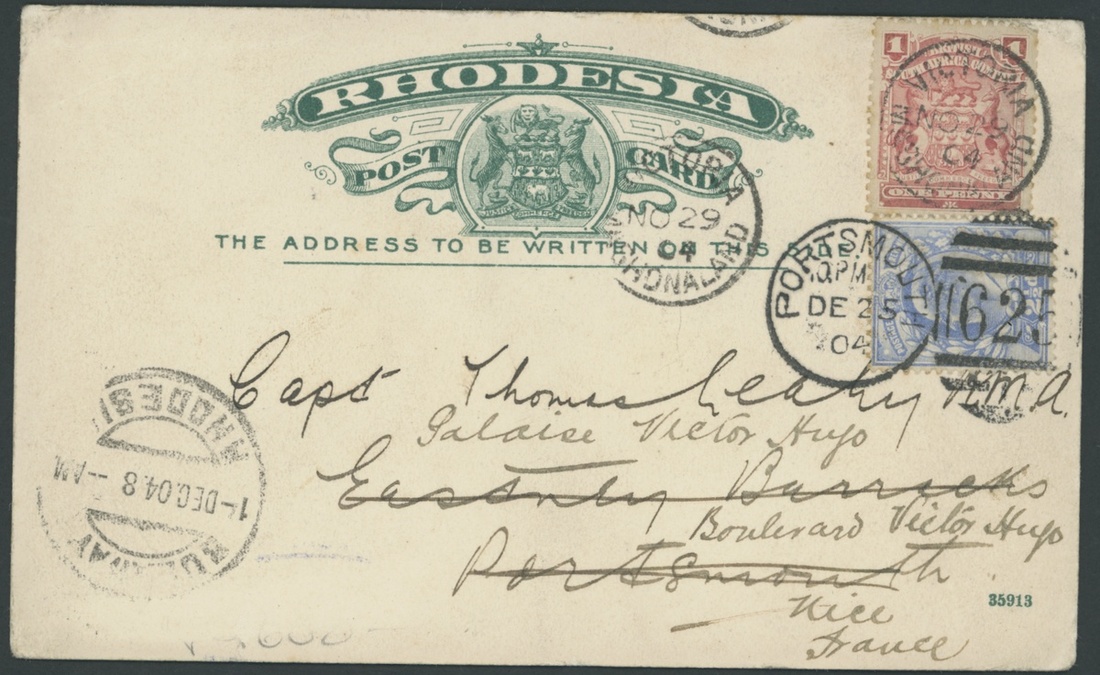 RHODESIA
POST CARD
THE ADDRESS TO BE WRITTEN ON THIS SIDE
1 1
BRITISH
SOUTH AFRICA COMPANY
ONE PENNY
VICTORIA
NO 29
04
MASHONALAND
VICTORIA
NO 29
04
MASHONALAND
PORTSMOUTH
10 PM
DE 25
04
625
Capt Thomas Leahy R.M.A.
Palaise Victor Hugo
Eastney Barracks
Boulevard Victor Hugo
Portsmouth
Nice
France
RHODESI
1-DEC.04.8--AM
35913